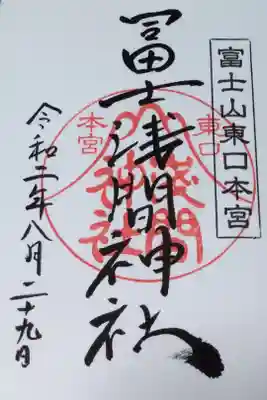 富士山東口本宮
冨士浅間神社
令和二年八月二十九日
東口
本宮
浅間
神社